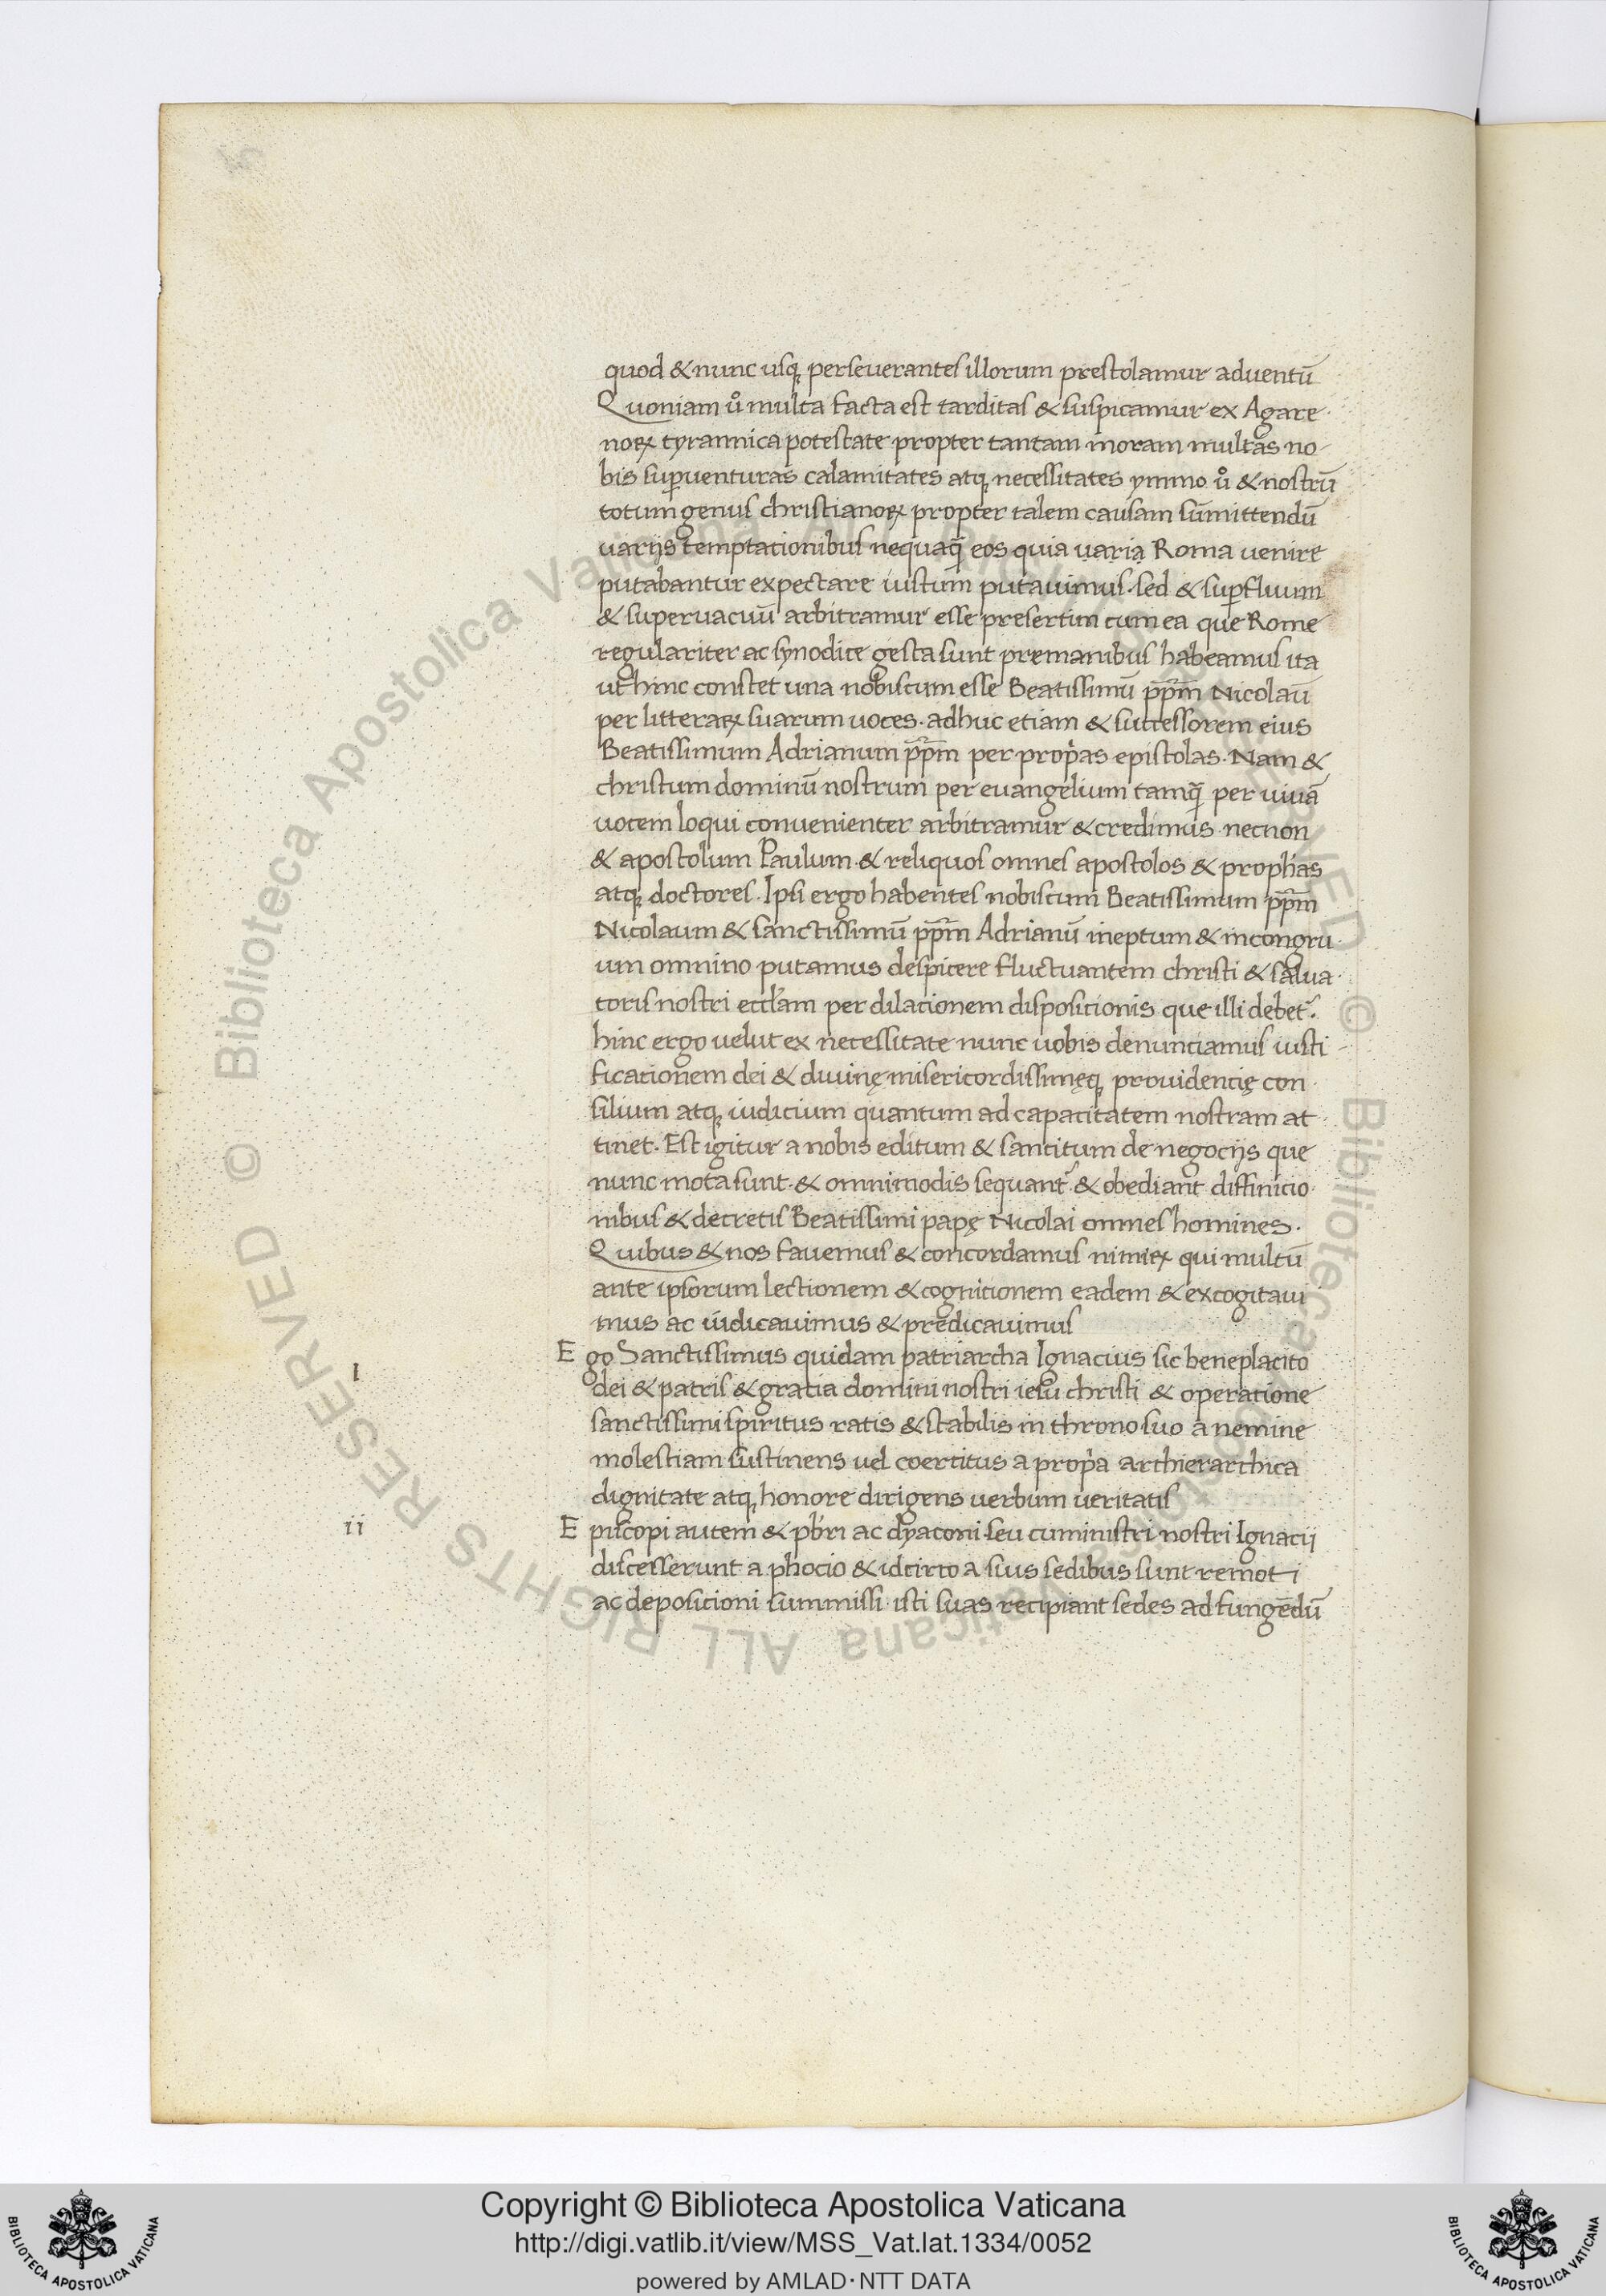 quod & nunc usq; perseuerantes illorum prestolamur aduentū
Quoniam ů multa facta est tarditas & suspicamur ex Agare
noꝝ tyrannica potestate propter tantam moram multas no
bis suꝑuenturas calamitates atq; necessitates ymmo ů & nostrū
totum genus christianoꝝ propter talem causam sūmittendū
uarijs temptationibus nequaq̄ eos quia uaria Roma uenire
putabantur expectare iustum putauimus. sed & suꝑfluum
& superuacuū arbitramur esse presertim cum ea que Rome
regulariter ac synodice gesta sunt premanibus habeamus ita
ut hinc constet una nobiscum esse Beatissimū pp̄m Nicolaū
per litteraꝝ suarum uoces. adhuc etiam & successorem eius
Beatissimum Adrianum pp̄m per prop̍as epistolas. Nam &
christum dominū nostrum per euangelium tamq̄ per uiuā
uocem loqui conuenienter arbitramur & credimus necnon
& apostolum Paulum & reliquos omnes apostolos & proph̄as
atq; doctores. Ipsi ergo habentes nobiscum Beatissimum pp̄m
Nicolaum & sanctissimū pp̄m Adrianū ineptum & incongru
um omnino putamus despicere fluctuantem christi & salua
toris nostri eccl̄am per dilacionem disposicionis que illi debet̃.
hinc ergo uelut ex necessitate nunc uobis denunciamus iusti
ficationem dei & diuinę misericordissimęq; prouidencię con
silium atq; iudicium quantum ad capacitatem nostram at
tinet. Est igitur a nobis editum & sancitum de negocijs que
nunc mota sunt. & omnimodis sequant̃ & obediant diffinicio
nibus & decretis Beatissimi papę Nicolai omnes homines.
Quibus & nos fauemus & concordamus nimiꝝ qui multū
ante ipsorum lectionem & cognicionem eadem & excogitaui
mus ac iudicauimus & predicauimus
I Ego Sanctissimus quidam patriarcha Ignacius sic beneplacito
dei & patris & gratia domini nostri iesu christi & operatione
sanctissimi spiritus ratis & stabilis in throno suo a nemine
molestiam sustinens uel coercitus a prop̍a archierarchica
dignitate atq; honore dirigens uerbum ueritatis
ii Episcopi autem & pb̄ri ac dyaconi seu cuministri nostri Ignacij
discesserunt a phocio & idcirco a suis sedibus sunt remoti
ac deposicioni summissi isti suas recipiant sedes ad fungēdū
© Biblioteca Apostolica Vaticana ALL RIGHTS RESERVED
BIBLIOTECA APOSTOLICA VATICANA
Copyright © Biblioteca Apostolica Vaticana
http://digi.vatlib.it/view/MSS_Vat.lat.1334/0052
powered by AMLAD·NTT DATA
BIBLIOTECA APOSTOLICA VATICANA